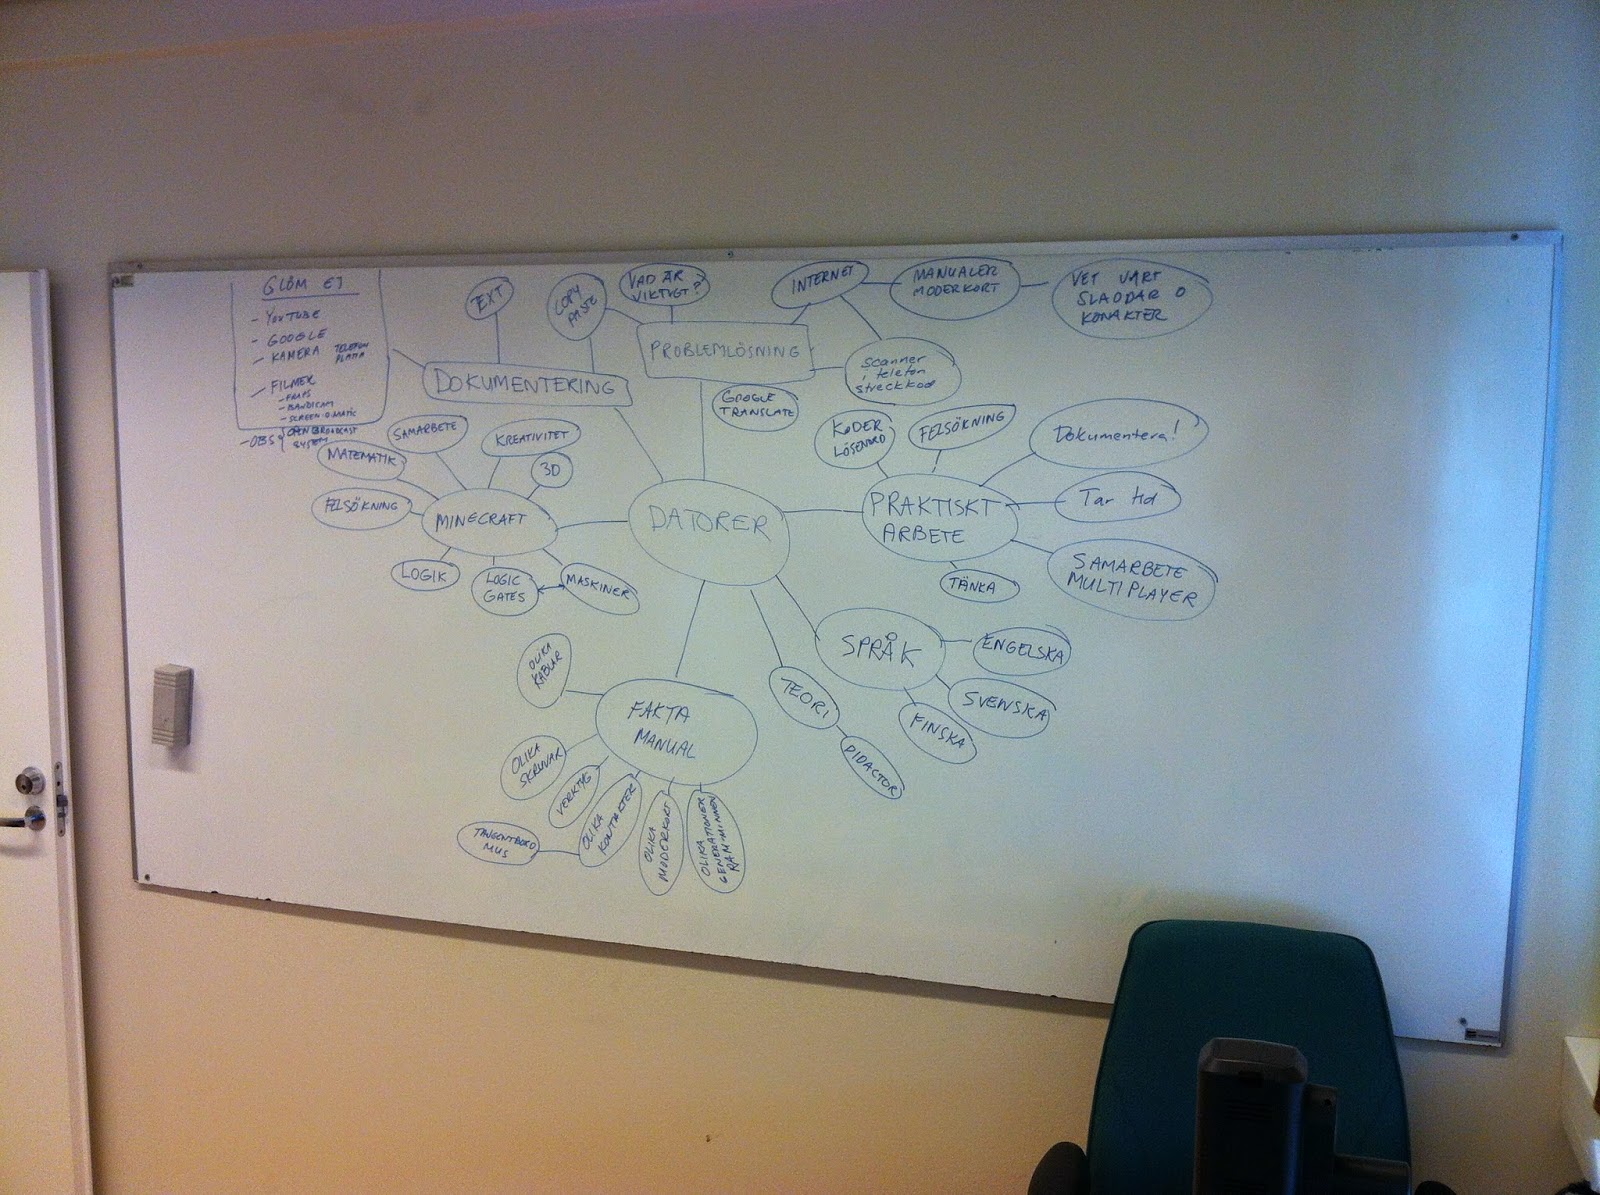 GLÖM EJ
- YOUTUBE
- GOOGLE
- KAMERA TELEFON
PLATTA
- FILMER
- FRAPS
- BANDICAM
- SCREEN-O-MATIC
- OBS OPEN BROADCAST
SYSTEM
TEXT
COPY
PASTE
DOKUMENTERING
VAD ÄR
VIKTIGT?
INTERNET
MANUALER
MODERKORT
VET VART
SLADDAR O
KONAKTER
PROBLEMLÖSNING
scanner
i telefon
streckkod
GOOGLE
TRANSLATE
SAMARBETE
KREATIVITET
MATEMATIK
3D
FELSÖKNING
MINECRAFT
LOGIK
LOGIC
GATES
MASKINER
DATORER
KODER
LÖSENORD
FELSÖKNING
Dokumentera!
PRAKTISKT
ARBETE
Tar tid
SAMARBETE
MULTIPLAYER
TÄNKA
SPRÅK
ENGELSKA
SVENSKA
FINSKA
TEORI
DIDACTOR
OLIKA
KABLAR
FAKTA
MANUAL
OLIKA
SKRUVAR
VERKTYG
OLIKA
KONTAKTER
TANGENTBORD
MUS
OLIKA
MODERKORT
OLIKA
GENERATIONER
RAM-MINNEN